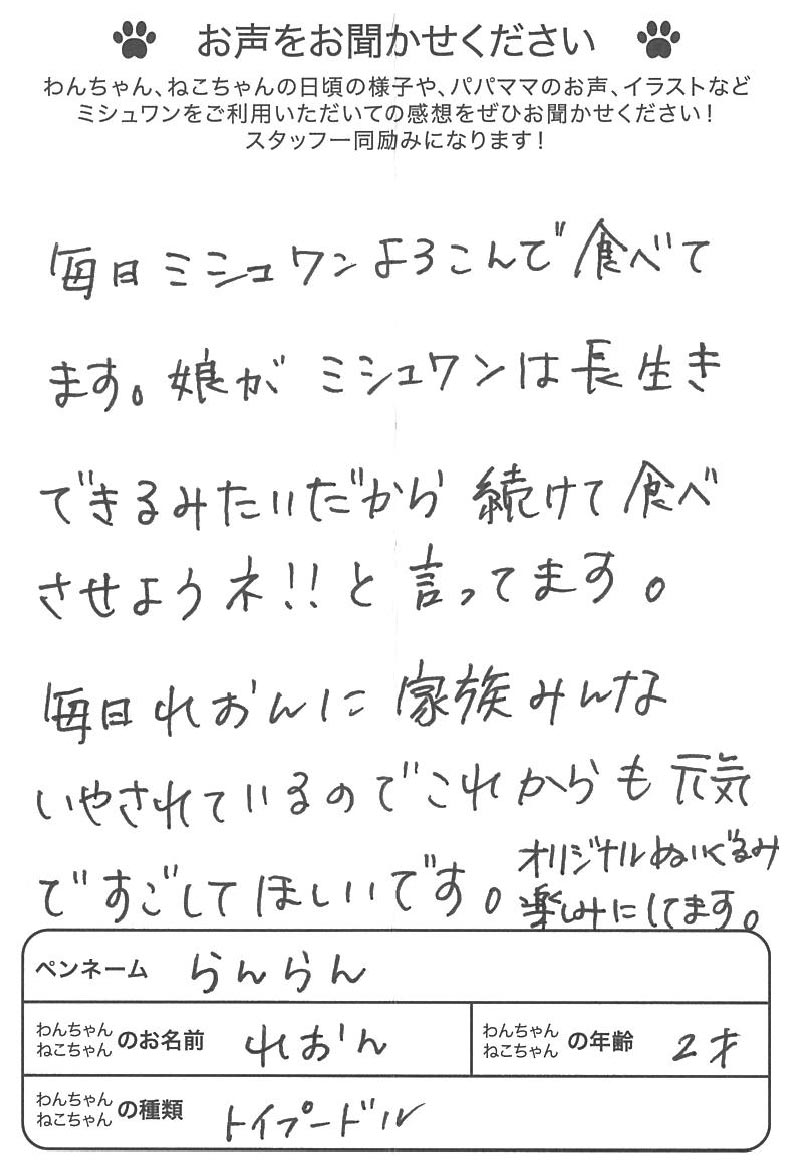 お声をお聞かせください
わんちゃん、ねこちゃんの日頃の様子や、パパママのお声、イラストなど
ミシュワンをご利用いただいての感想をぜひお聞かせください！
スタッフ一同励みになります！
毎日ミシュワンよろこんで食べて
ます。娘がミシュワンは長生き
できるみたいだから続けて食べ
させようネ!!と言ってます。
毎日れおんに家族みんな
いやされているのでこれからも元気
ですごしてほしいです。
オリジナルぬいぐるみ
楽しみにしてます。
ペンネーム らんらん
わんちゃん
ねこちゃん のお名前 れおん
わんちゃん
ねこちゃん の年齢 2才
わんちゃん
ねこちゃん の種類 トイプードル